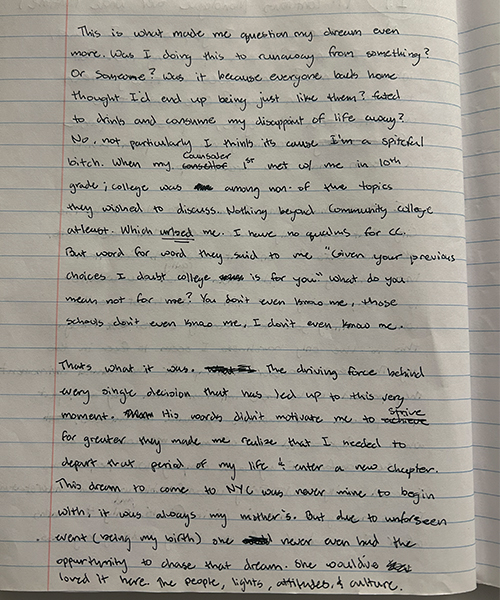 This is what made me question my dream even
more. Was I doing this to runaway from something?
Or Someone? Was it because everyone back home
thought I'd end up being just like them? fated
to drink and consume my disappoint of life away?
No, not particularly I think its cause I'm a spiteful
bitch. When my Counsaler 1st met w/ me in 10th
grade; college was among non of the topics
they wished to discuss. Nothing beyond Community college
atleast. Which irked me. I have no qualms for CC.
But word for word they said to me "Given your previous
choices I doubt college is for you" what do you
mean not for me? You don't even know me, those
schools don't even know me, I don't even know me.
Thats what it was. The driving force behind
every single decision that has led up to this very
moment. His words didn't motivate me to strive
for greater they made me realize that I needed to
depart that period of my life & enter a new chapter.
This dream to come to NYC was never mine to begin
with, it was always my mother's. But due to unforseen
event (being my birth) she never even had the
oppurtunity to chase that dream. She wouldive
loved it here. The people, lights, attitudes, & culture.